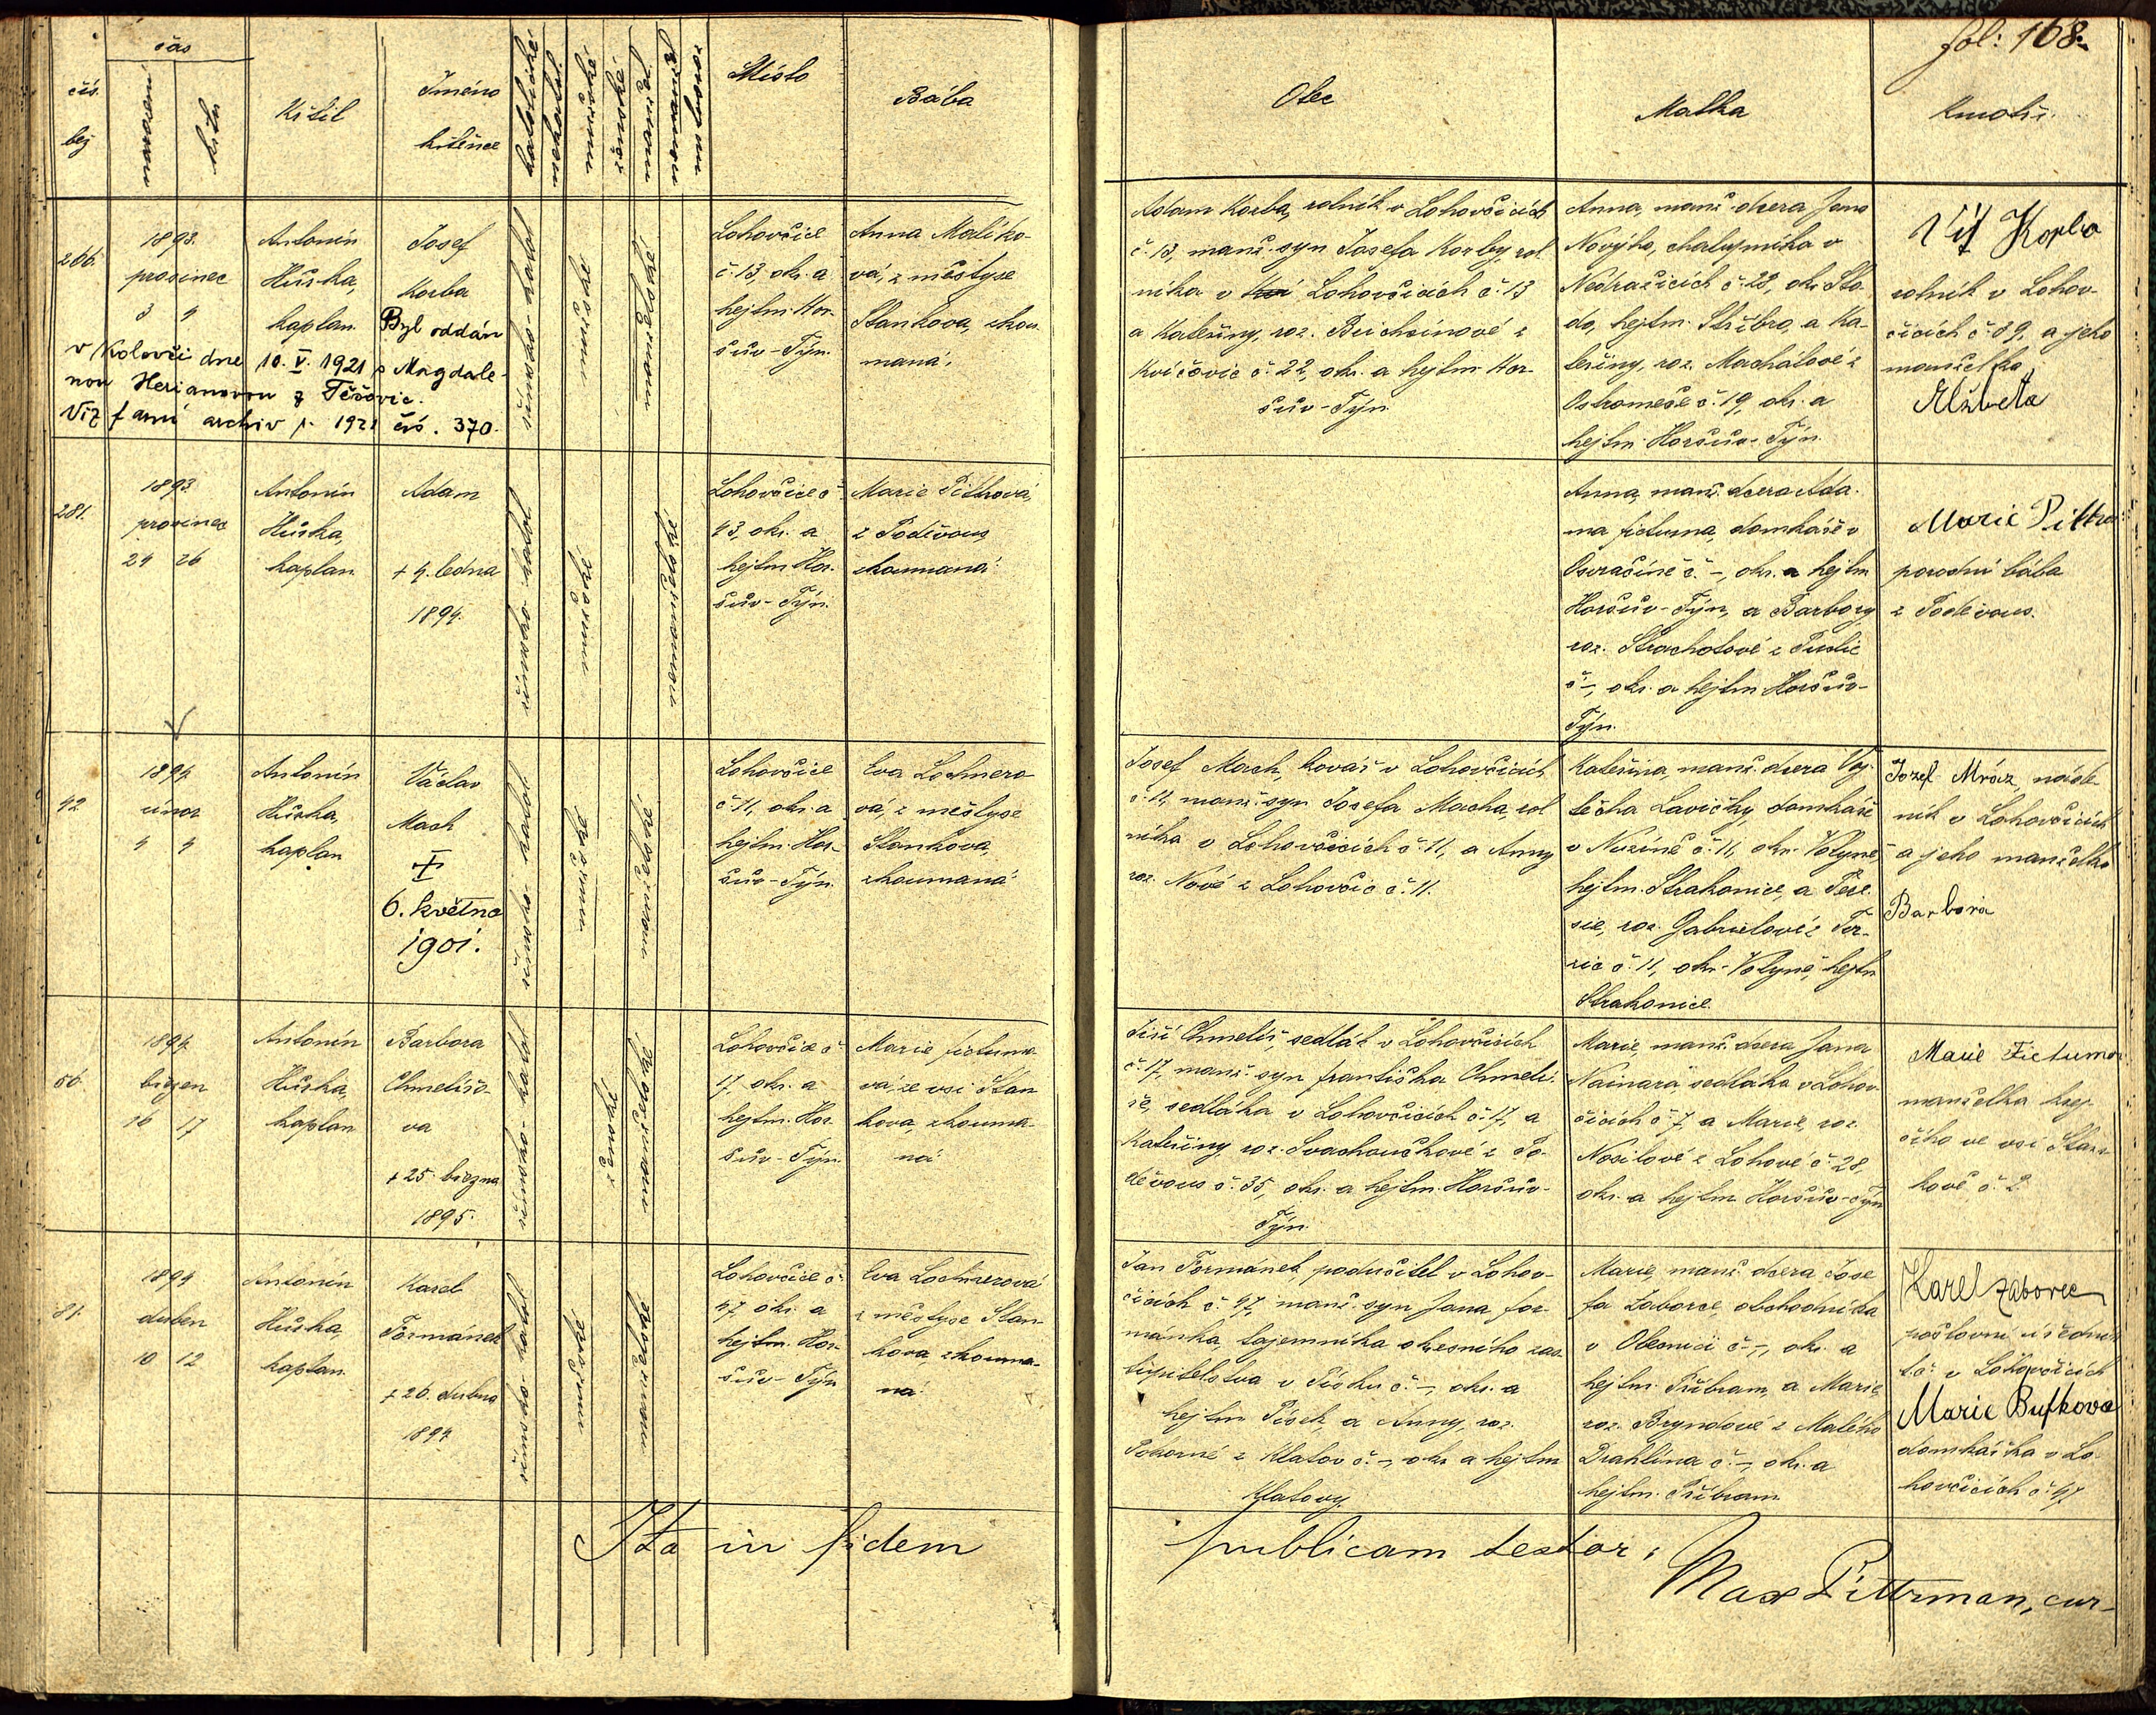 fol: 168.
čís. běž
čas
narození
křtu
Křtil
Jméno
křtěnce
katolické
nekatol.
mužské
ženské
manžel.
nemanžel.
mrtvoroz.
Místo
Bába
Otec
Matka
Kmotři.
266.
1893.
prosinec
3 4
Antonín
Hůrka,
kaplan
Josef
Korba
Byl oddán
v Koloveči dne 10. V. 1921 s Magdale-
nou Herianovou z Těšovic.
Viz farní archiv r. 1921 čís. 370.
římsko-katol
mužské
manželské
Lohovčice
č. 13, okr. a
hejtm. Hor-
šův-Týn.
Anna Maliko-
vá, z městyse
Stankova, zkou-
maná.
Adam Korba, rolník v Lohovčicích
č. 13, manž. syn Josefa Korby, rol
níka v Lohovčicích č. 13
a Kateřiny, roz. Buichsínové z
Kvíčovic č. 22, okr. a hejtm. Hor-
šův-Týn.
Anna, manž. dcera Jana
Nového, chalupníka v
Nedražicích č. 28, okr. Sto
do, hejtm. Stříbro, a Ka-
teřiny, roz. Machátové z
Ostromeče č. 19, okr. a
hejtm. Horšův-Týn.
Vít Korba
rolník v Lohov-
čicích č. 39, a jeho
manželka
Alžběta
281.
1893.
prosinec
24 26
Antonín
Hůrka,
kaplan
Adam
+ 4. ledna
1894.
římsko-katol
mužské
nemanželské
Lohovčice č.
43, okr. a
hejtm. Hor-
šův-Týn.
Marie Pittrová,
z Poděvous,
zkoumaná.
Anna, manž. dcera Ada-
ma Fictuma, domkáře v
Osvračíně č. -, okr. a hejtm
Horšův-Týn, a Barbory
roz. Strachotové z Puclic
č. -, okr. a hejtm Horšův-
Týn.
Marie Pittro
porodní bába
z Poděvous.
42
1894
únor
4 4
Antonín
Hůrka,
kaplan
Václav
Mach
+
6. května
1901.
římsko-katol
mužské
manželské
Lohovčice
č. 11, okr. a
hejtm. Hor-
šův-Týn.
Eva Lochnero
vá, z městyse
Stankova,
zkoumaná.
Josef Mach, kovář v Lohovčicích
č. 11, manž. syn Josefa Macha, rol
níka v Lohovčicích č. 11, a Anny
roz. Nové z Lohovčic č. 11.
Kateřina, manž. dcera Voj-
těcha Lavičky, domkáře
v Nuzíně č. 11, okr. Volyně,
hejtm. Strakonice, a Tere
sie, roz. Gabrielové z
č. 11, okr. Volyně, hejtm
Strakonice.
Jozef Mráz, náde-
ník v Lohovčicích
a jeho manželka
Barbora
56.
1894.
březen
16 17
Antonín
Hůrka,
kaplan
Barbora
Chmelířo-
va
+ 25. března
1895.
římsko-katol
ženské
manželské
Lohovčice č.
17, okr. a
hejtm. Hor-
šův-Týn.
Marie Fictumo-
vá, ze vsi Stan
kova, zkouma-
ná
Jiří Chmelíř, sedlák v Lohovčicích
č. 17, manž. syn Františka Chmelí-
ře, sedláka v Lohovčicích č. 17, a
Kateřiny roz. Svachouškové z Po-
děvous č. 35, okr. a hejtm. Horšův-
Týn.
Marie, manž. dcera Jana
Nainara sedláka v Lohov-
čicích č. 7, a Marie, roz.
Nosilové z Lohové č. 28,
okr. a hejtm Horšův-Týn
Marie Fictumo
manželka krej-
čího ve vsi Stan-
kově č. 2.
81.
1894
duben
10 12
Antonín
Hůrka,
kaplan
Karel
Formánek
+ 26. dubna
1894
římsko-katol
mužské
manželské
Lohovčice č.
47 okr. a
hejtm. Hor-
šův-Týn
Eva Lochnerová
z městyse Stan-
kova zkouma-
ná
Jan Formánek, podučitel v Lohov-
čicích č. 47, manž. syn Jana For-
mánka, tajemníka okresního zas-
tupitelstva v Písku č. -, okr. a
hejtm Písek, a Anny, roz.
Pokorné z Klatov č. -, okr. a hejtm
Klatovy.
Marie, manž. dcera Jose-
fa Zaborce, obchodníka
v Obecnici č. -, okr. a
hejtm. Příbram, a Marie,
roz. Bryndové z Malého
Drahlína č. -, okr. a
hejtm. Příbram.
Karel Zaborec
poštovní úředník
t.č. v Lohovčicích
Marie Bufkova
domkářka v Lo-
hovčicích č. 47
Ita in fidem publicam testor:
Max Pittrman, cur-